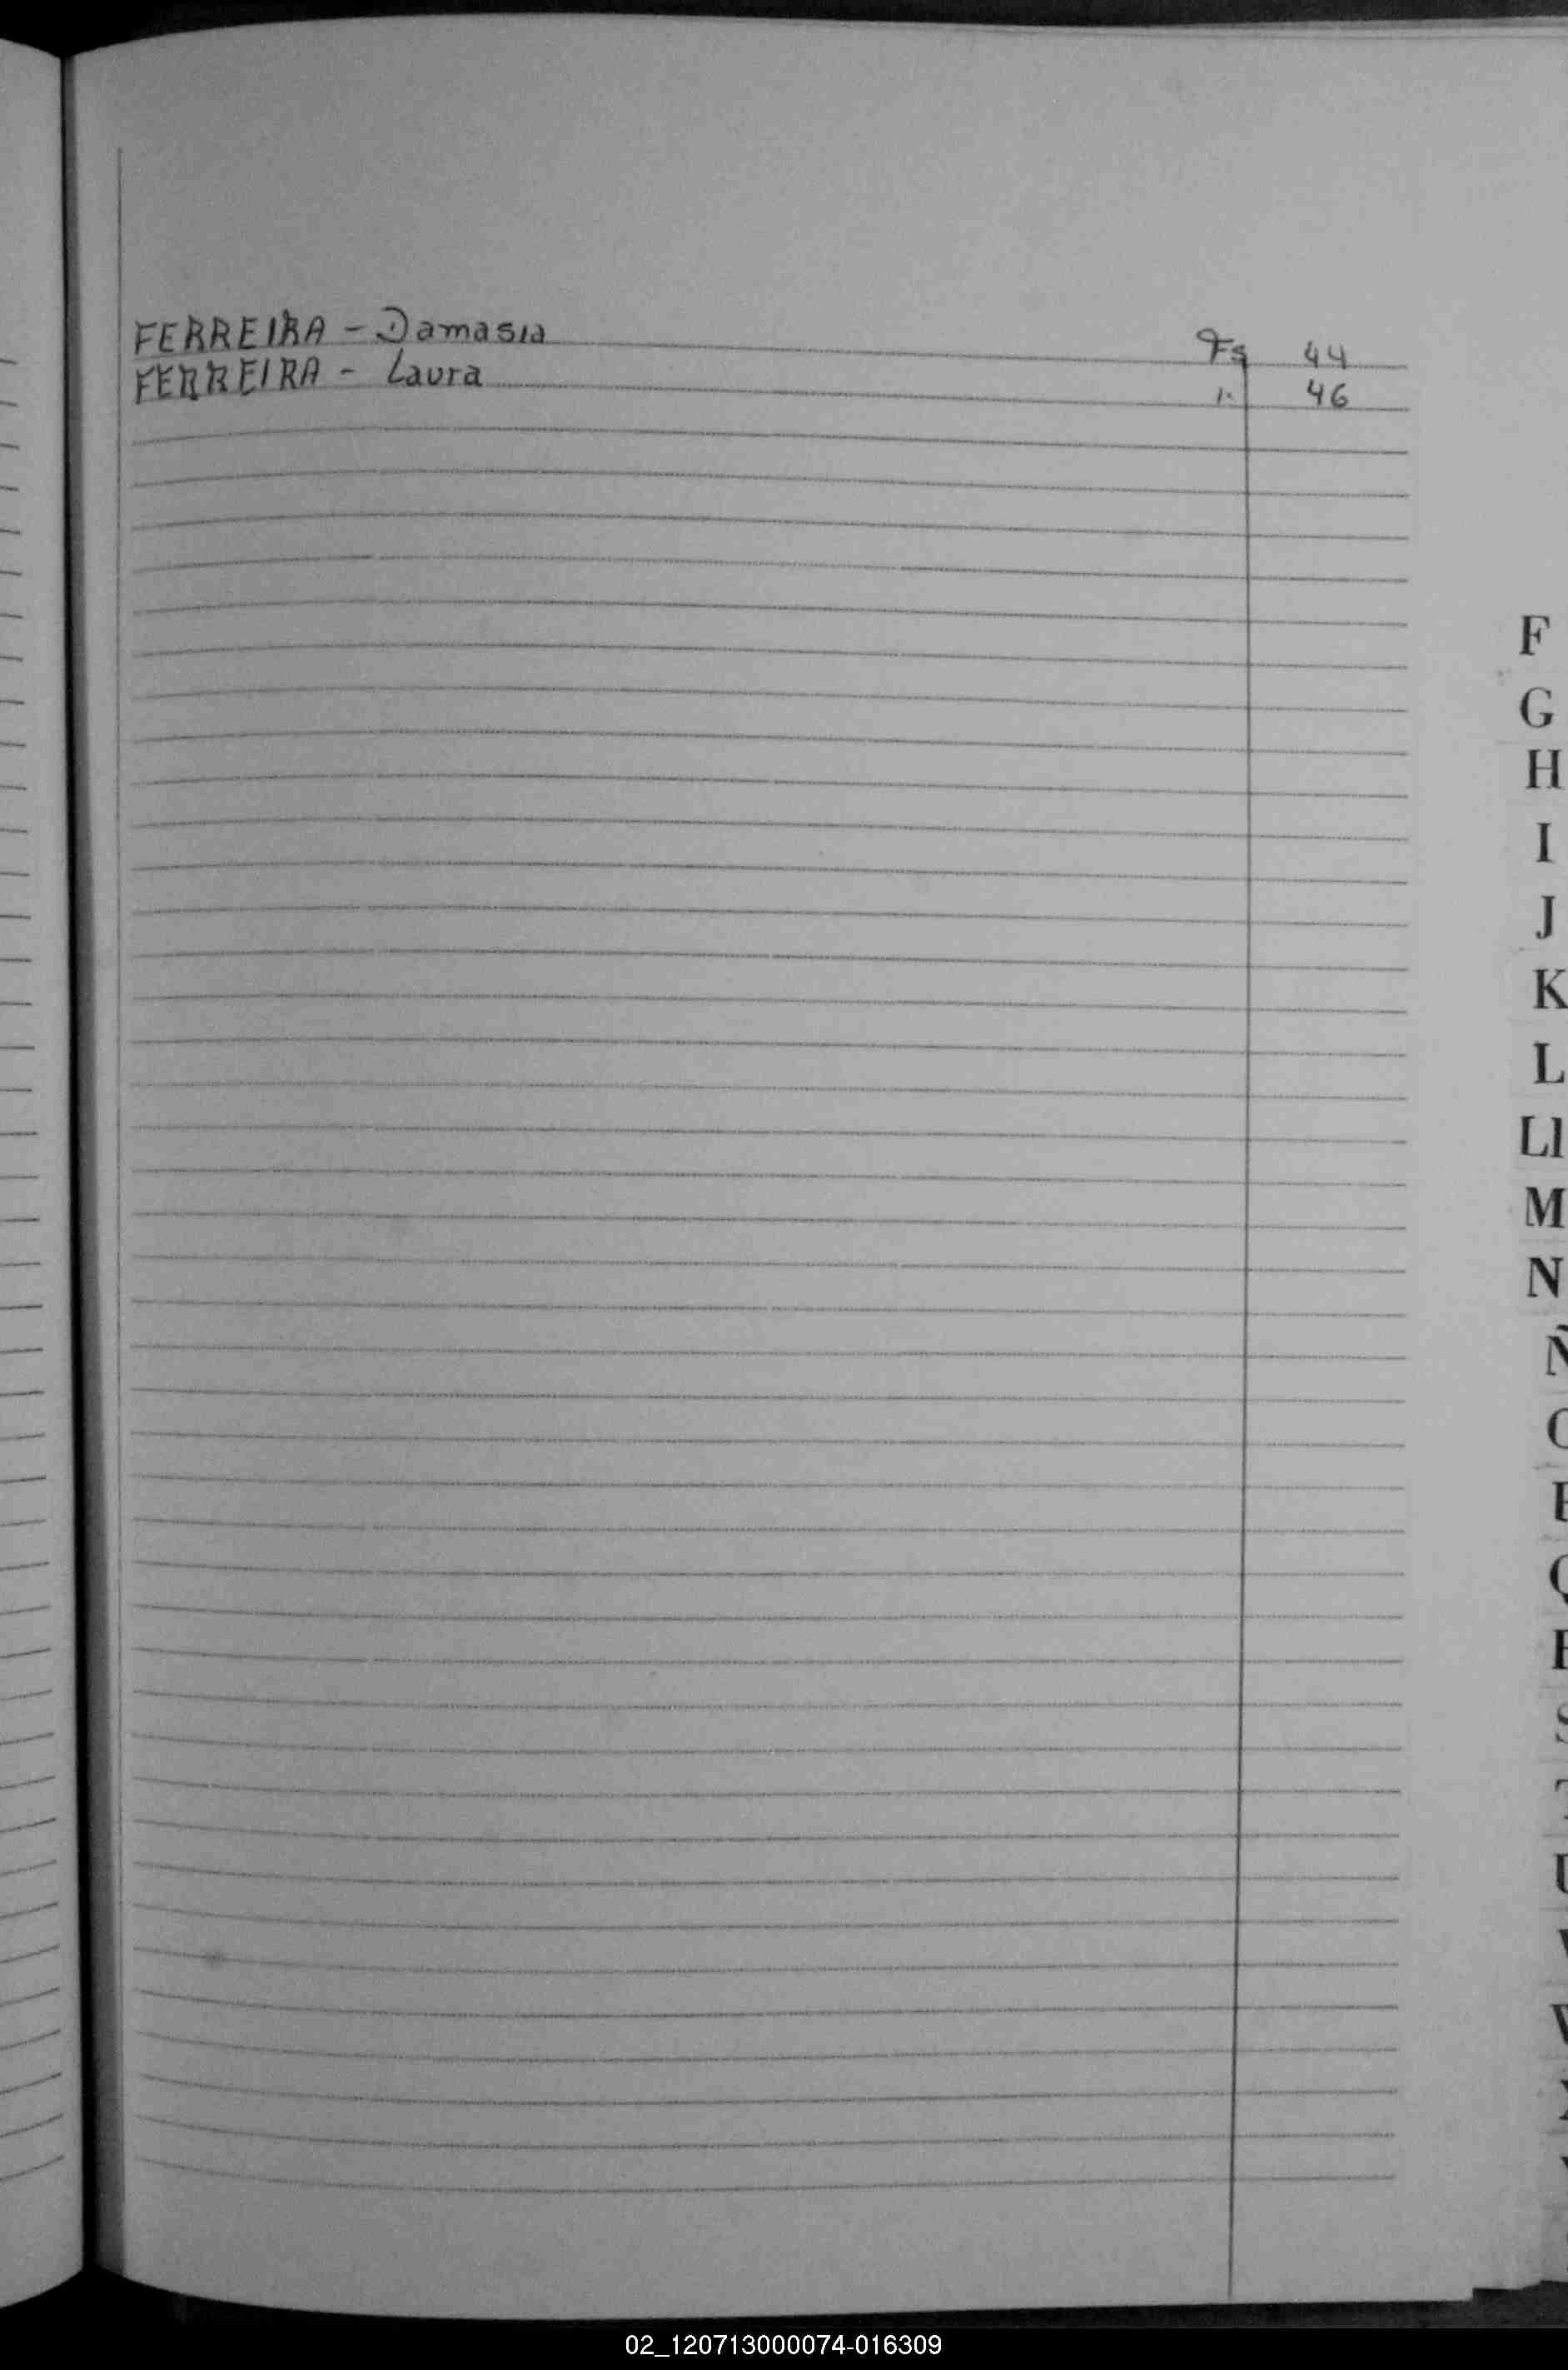 FERREIRA - Damasia Fs 44
FERREIRA - Laura " 46
F
G
H
I
J
K
L
Ll
M
N
Ñ
02_120713000074-016309